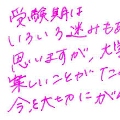 受験期は
いろいろ迷みもあ
思いますが、大学
楽しいことがたこ
今を大切にがん